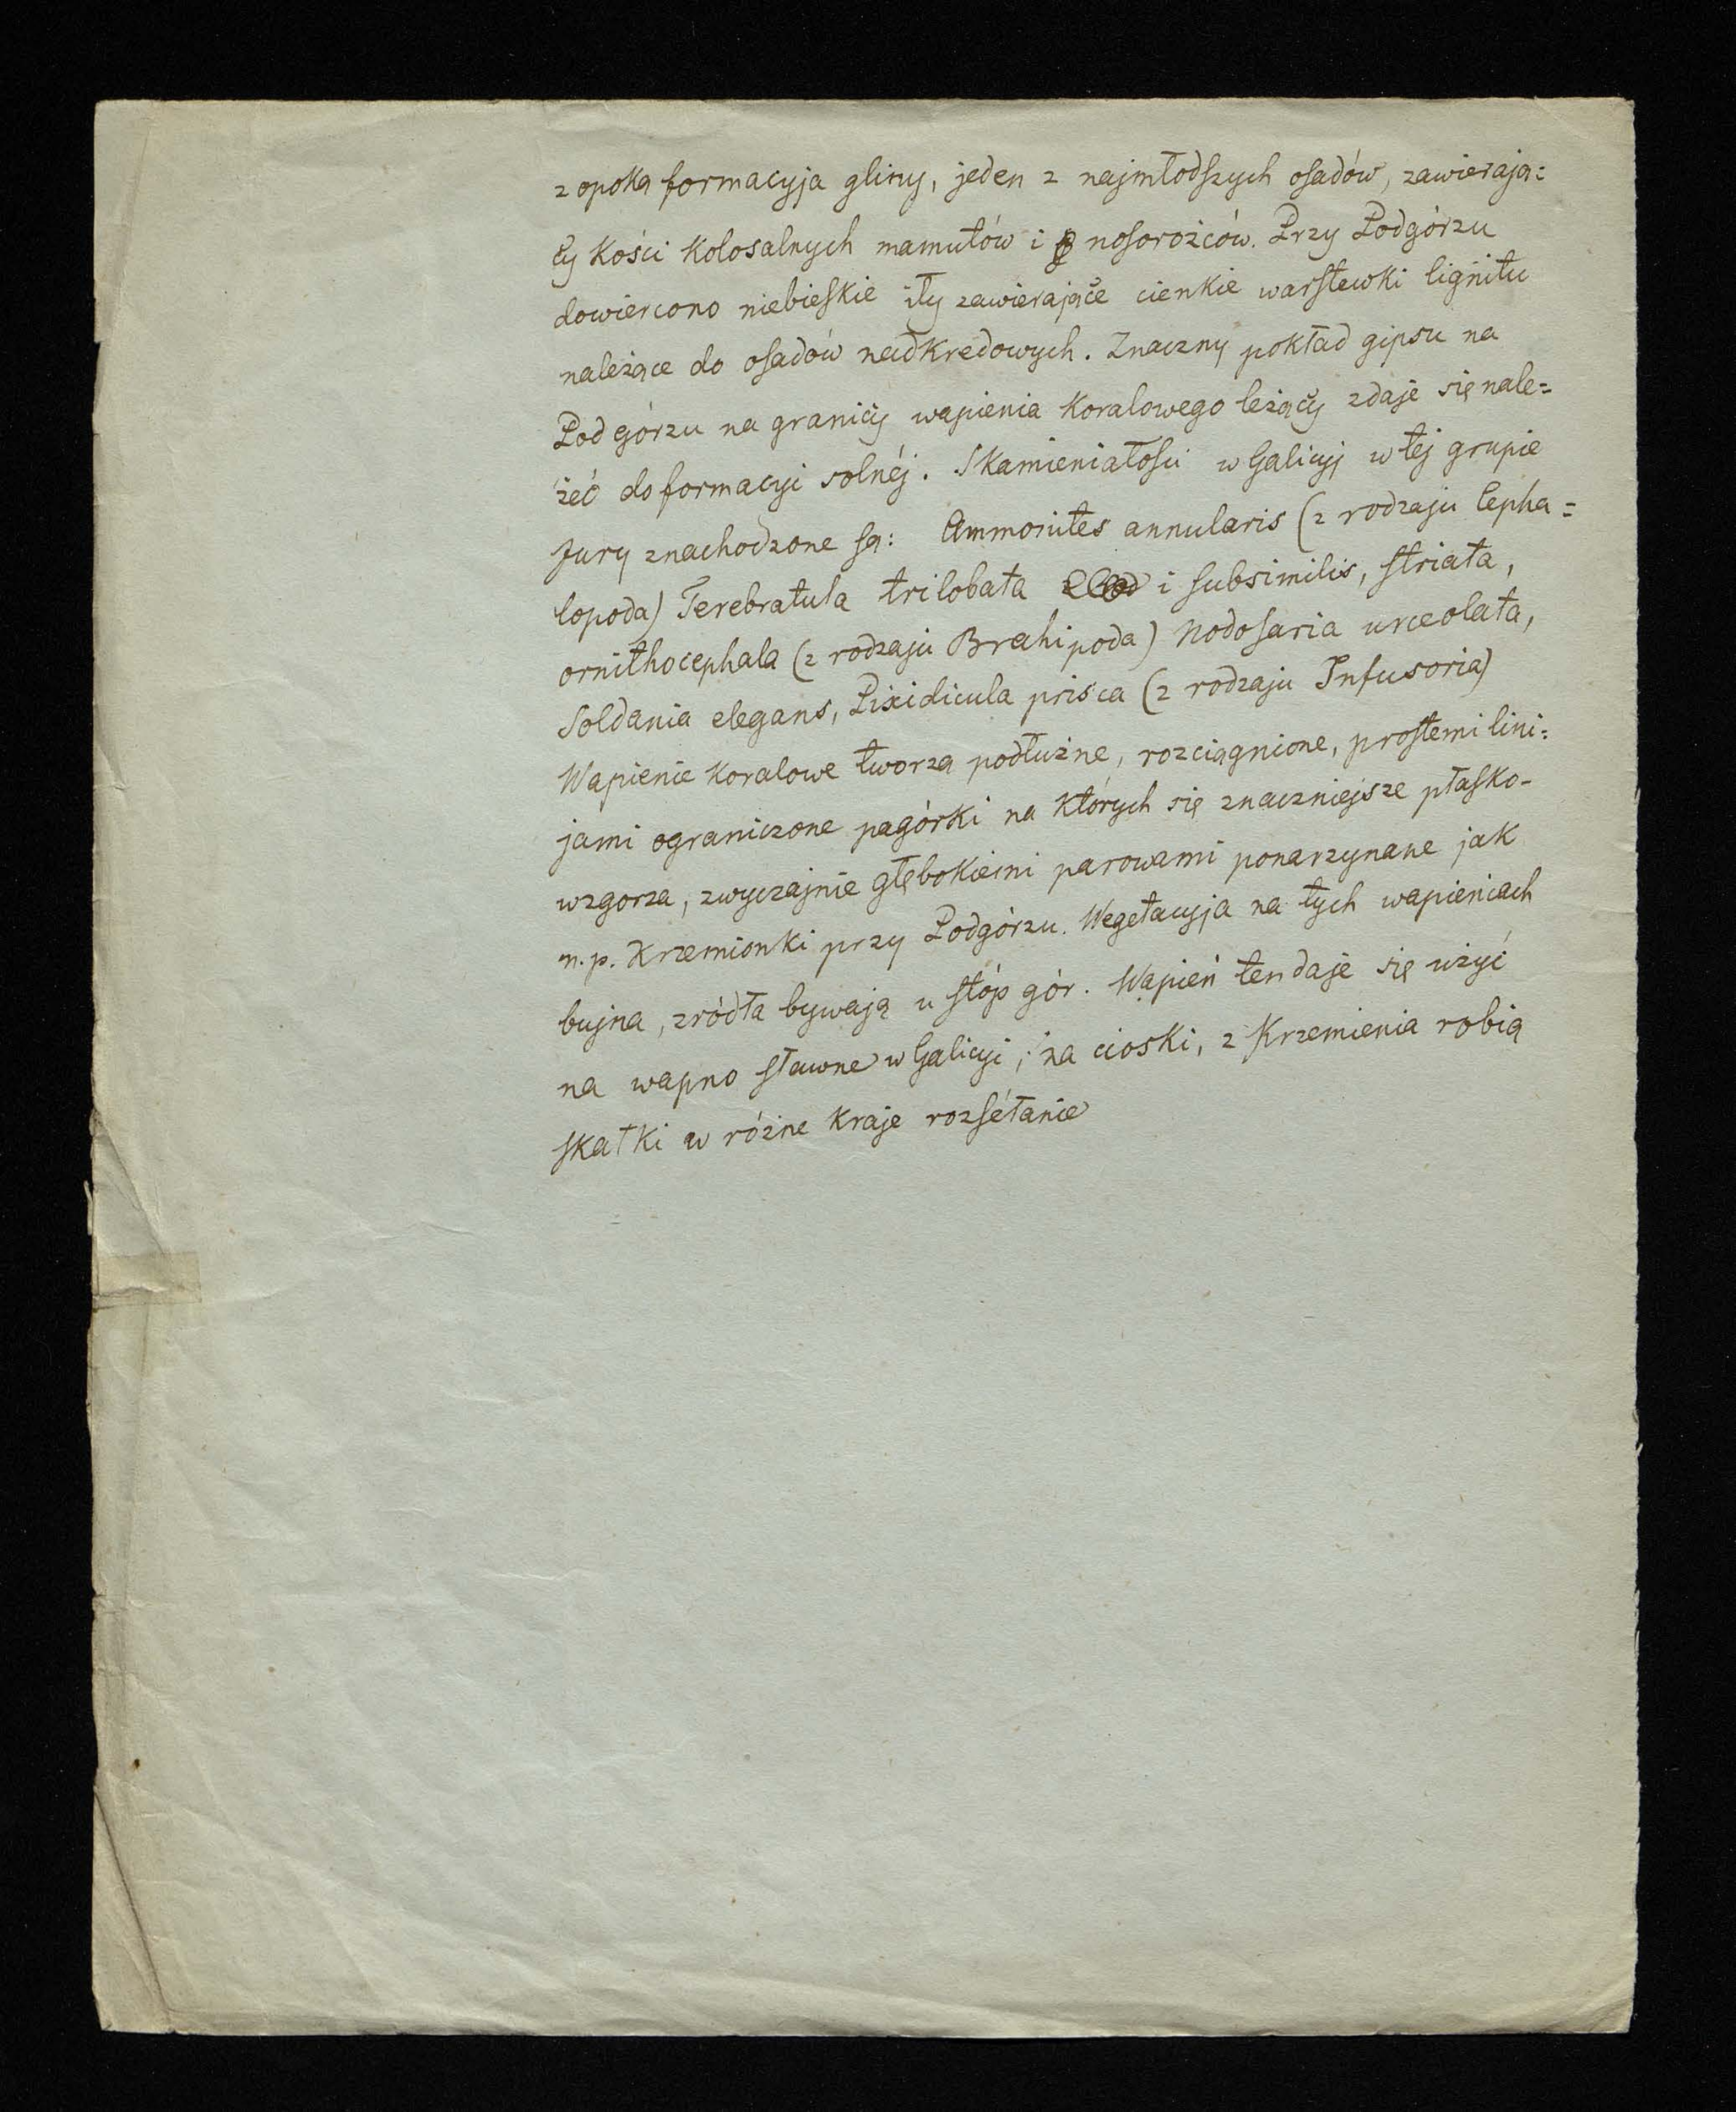 z opoką formacyja gliny, jeden z najmłodszych osadów, zawierają=
cy kości kolosalnych mamutów i nosorożców. Przy Podgórzu
dowiercono niebieskie iły zawierające cienkie warstewki lignitu
należące do osadów nadkredowych. Znaczny pokład gipsu na
Podgórzu na granicy wapienia koralowego leżący zdaje się nale=
żeć do formacyi solnéj. Skamieniałości w Galicyi w tej grupie
Jury znachodzone są: Ammonites annularis (z rodzaju Cepha=
lopoda) Terebratula trilobata i subsimilis, striata,
ornithocephala (z rodzaju Brahipoda) Nodosaria urceolata,
Soldania elegans, Pixidicula prisca (z rodzaju Infusoria)
Wapienie koralowe tworzą podłużne, rozciągnione, prostemi lini=
jami ograniczone pagórki na których się znaczniejsze płasko-
wzgorza, zwyczajnie głębokiemi parowami ponarzynane jak
n.p. Krzemionki przy Podgórzu. Wegetacyja na tych wapieniach
bujna, zródła bywają u stóp gór. Wapień ten daje się użyć
na wapno sławne w Galicyi, na cioski, z Krzemienia robią
skałki w różne kraje rozséłanie